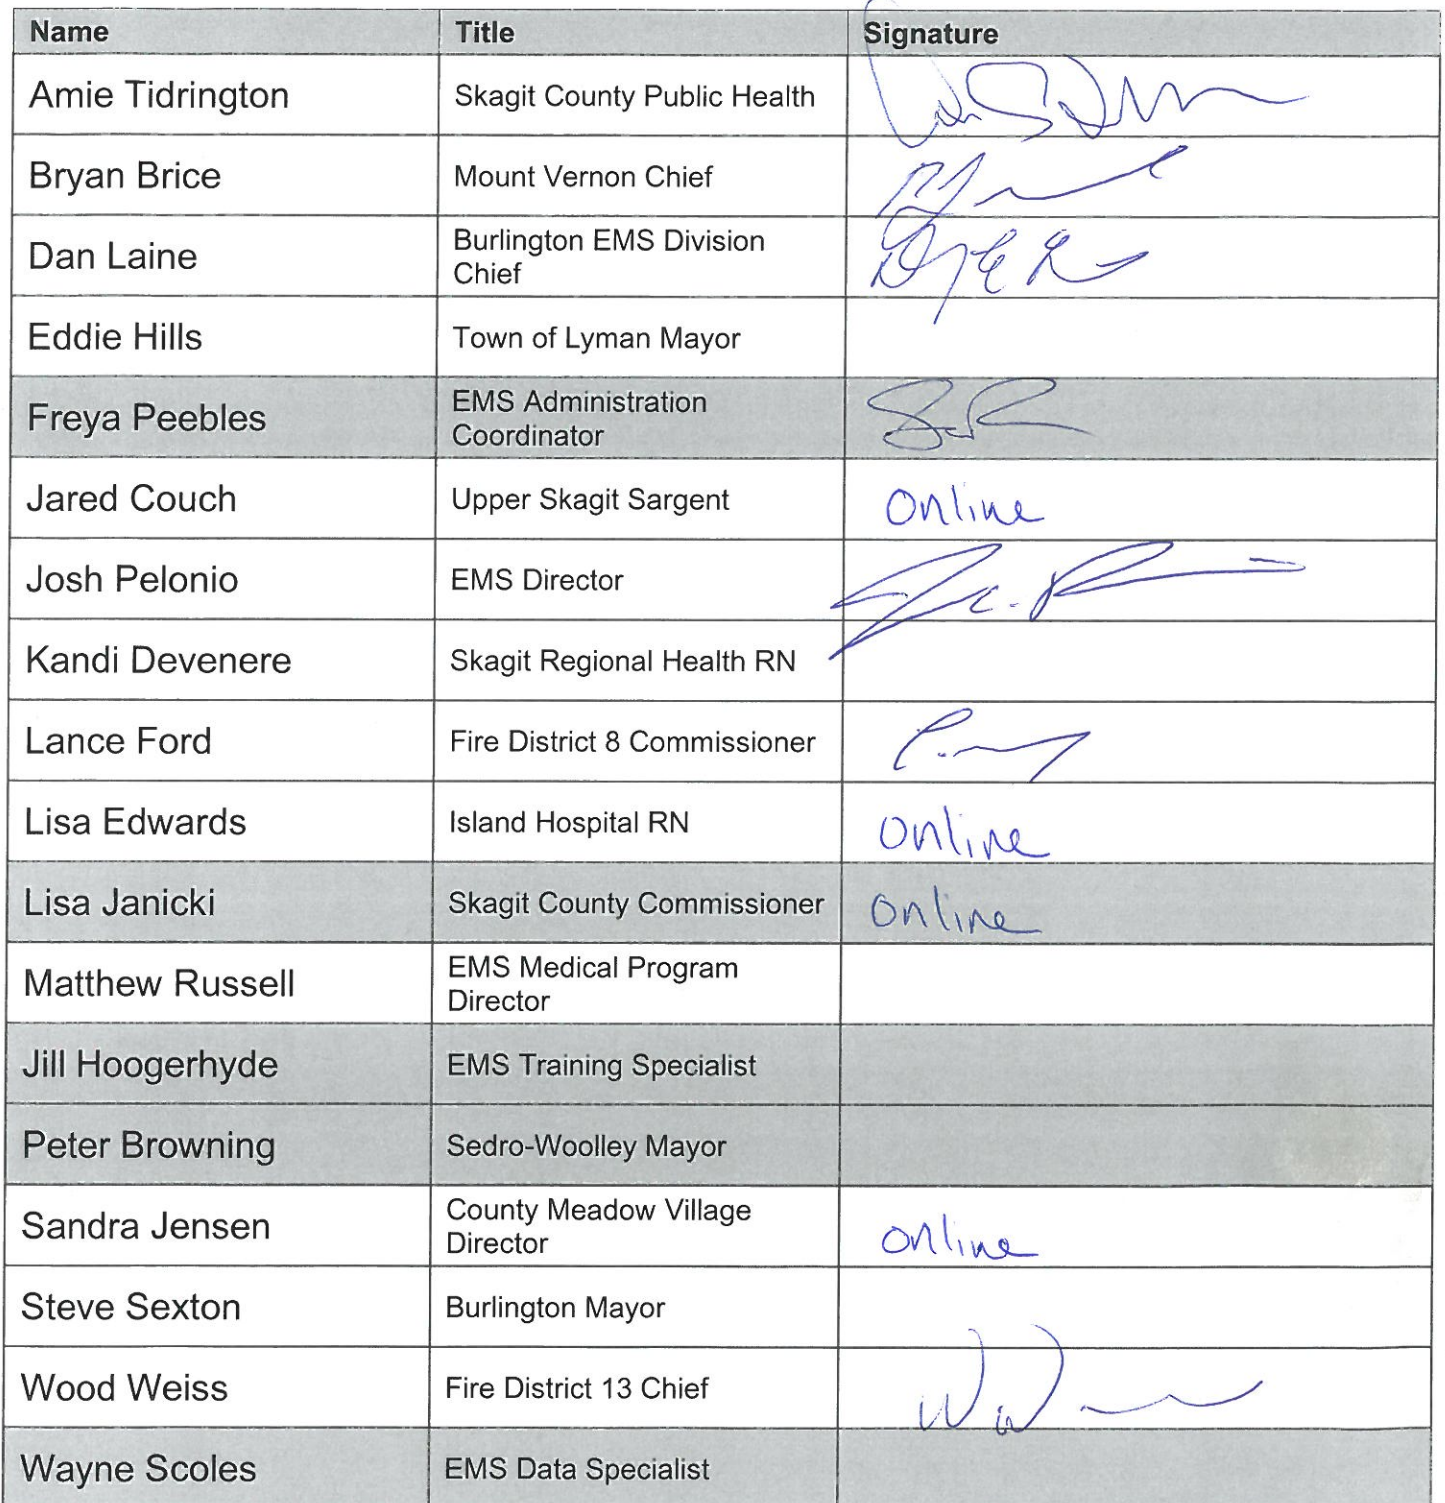 Name Title Signature
Amie Tidrington Skagit County Public Health
Bryan Brice Mount Vernon Chief
Dan Laine Burlington EMS Division
Chief
Eddie Hills Town of Lyman Mayor
Freya Peebles EMS Administration
Coordinator
Jared Couch Upper Skagit Sargent Online
Josh Pelonio EMS Director
Kandi Devenere Skagit Regional Health RN
Lance Ford Fire District 8 Commissioner
Lisa Edwards Island Hospital RN Online
Lisa Janicki Skagit County Commissioner Online
Matthew Russell EMS Medical Program
Director
Jill Hoogerhyde EMS Training Specialist
Peter Browning Sedro-Woolley Mayor
Sandra Jensen County Meadow Village
Director Online
Steve Sexton Burlington Mayor
Wood Weiss Fire District 13 Chief
Wayne Scoles EMS Data Specialist